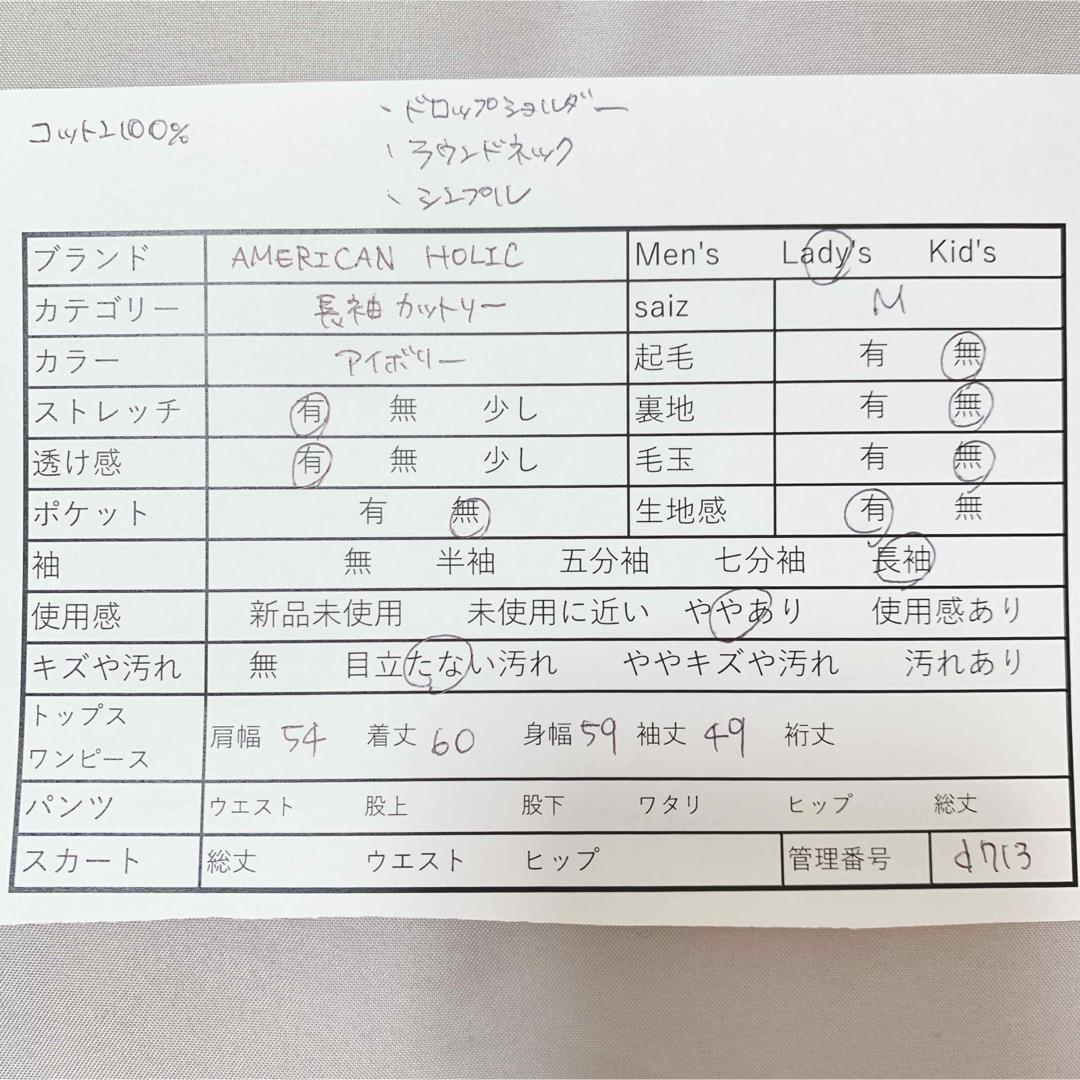 コットン100%
・ドロップショルダー
・ラウンドネック
・シンプル
ブランド AMERICAN HOLIC Men's Lady's Kid's
カテゴリー 長袖カットソー saiz M
カラー アイボリー 起毛 有 無
ストレッチ 有 無 少し 裏地 有 無
透け感 有 無 少し 毛玉 有 無
ポケット 有 無 生地感 有 無
袖 無 半袖 五分袖 七分袖 長袖
使用感 新品未使用 未使用に近い ややあり 使用感あり
キズや汚れ 無 目立たない汚れ ややキズや汚れ 汚れあり
トップス
ワンピース 肩幅 54 着丈 60 身幅 59 袖丈 49 裄丈
パンツ ウエスト 股上 股下 ワタリ ヒップ 総丈
スカート 総丈 ウエスト ヒップ 管理番号 d713